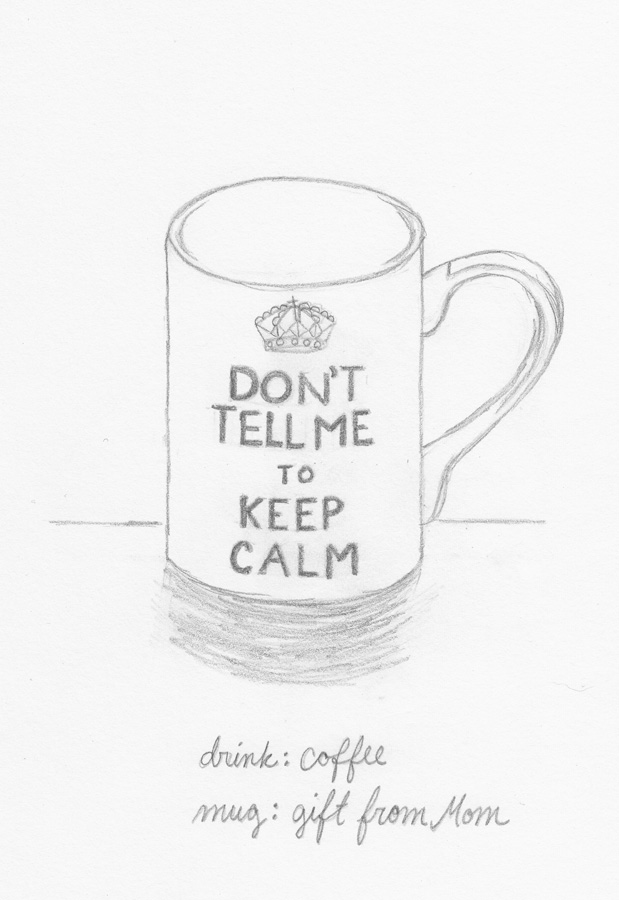 DON'T
TELL ME
TO
KEEP
CALM
drink: coffee
mug: gift from Mom